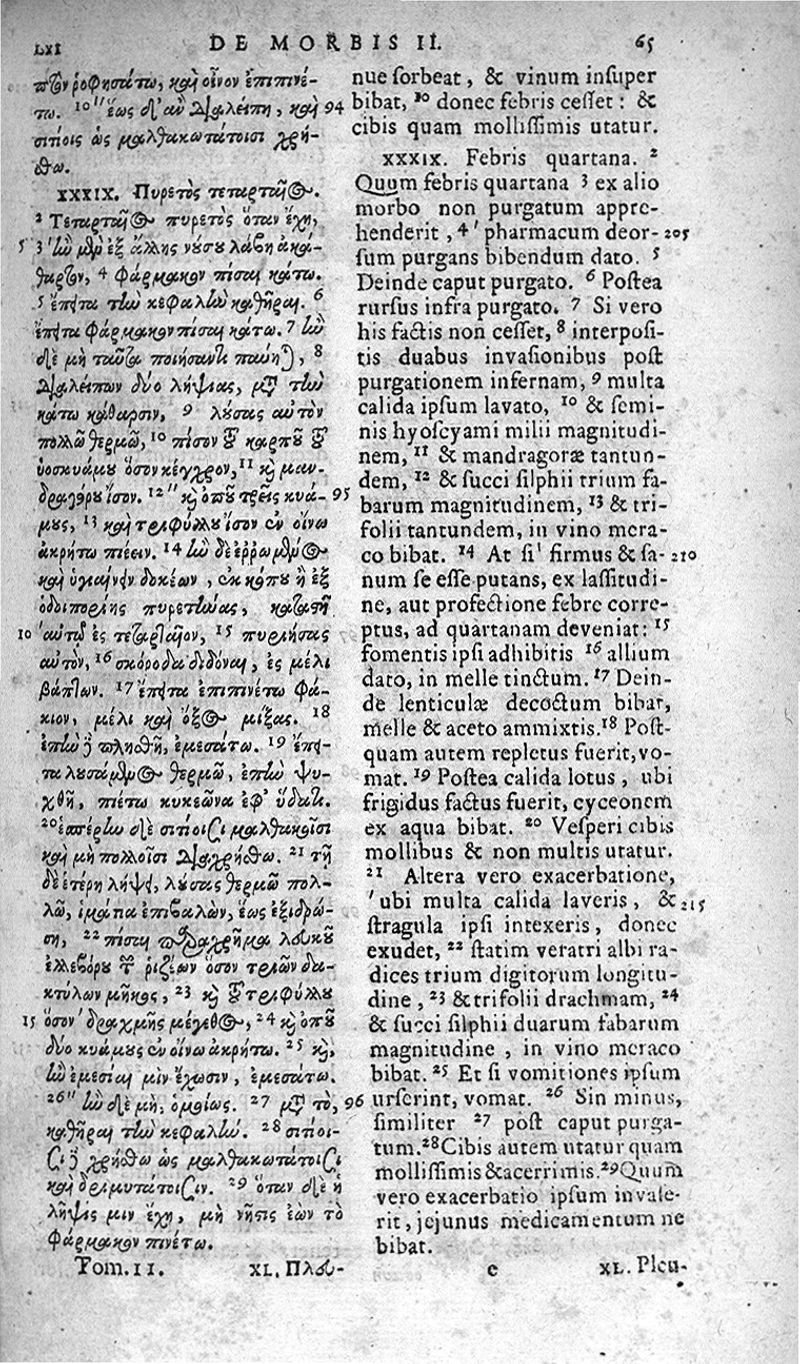 LXI DE MORBIS II. 65
πτὸν ῥοφησάτω, καὶ οἶνον ἐπιπινέ-
τω. 10 "ἕως δ' ἂν διαλείπη, καὶ 94
σιτίοις ὡς μαλθακωτάτοισι χρή-
σθω.
XXXIX. Πυρετὸς τεταρταῖος.
2 Τεταρταῖος πυρετὸς ὅταν ἔχη,
5 3 'ἢν μὲν ἐξ ἄλλης νούσου λάβη ἀκά-
θαρτον, 4 φάρμακον πῖσαι κάτω.
5 ἔπειτα τὴν κεφαλὴν καθῆραι. 6
ἔπειτα φάρμακον πῖσαι κάτω. 7 ἢν
δὲ μὴ ταῦτα ποιήσαντι παύηται, 8
διαλείπων δύο λήψιας, μετὰ τὴν
κάτω κάθαρσιν, 9 λούσας αὐτὸν
πολλῷ θερμῷ, 10 πῖσον τοῦ καρποῦ τοῦ
ὑοσκυάμου ὅσον κέγχρον, 11 καὶ μαν-
δραγόρου ἴσον. 12 " καὶ ὀποῦ τρεῖς κυά- 95
μους, 13 καὶ τριφύλλου ἴσον ἐν οἴνω
ἀκρήτω πιέειν. 14 ἢν δὲ ἐρρωμένος
καὶ ὑγιαίνειν δοκέων, ἐκ κόπου ἢ ἐξ
ὁδοιπορίης πυρετήνας, καταστῆ
10 'αὐτῷ ἐς τεταρταῖον, 15 πυριήσας
αὐτὸν, 16 σκόροδα διδόναι, ἐς μέλι
βάπτων. 17 ἔπειτα ἐπιπινέτω φά-
κιον, μέλι καὶ ὄξος μίξας. 18
ἐπὴν δὲ πλησθῆ, ἐμεσάτω. 19 ἔπει-
τα λουσάμενος θερμῷ, ἐπὴν ψυ-
χθῆ, πιέτω κυκεῶνα ἐφ' ὕδατι.
20 ἑσπέρην δὲ σιτίοισι μαλθακοῖσι
καὶ μὴ πολλοῖσι διαχρήσθω. 21 τῆ
δὲ ἑτέρη λήψει, λούσας θερμῷ πολ-
λῷ, ἱμάτια ἐπιβαλὼν, ἕως ἐξιδρώ-
ση, 22 πῖσαι παραχρῆμα λευκοῦ
ἐλλεβόρου τῶν ῥιζέων ὅσον τριῶν δα-
κτύλων μῆκος, 23 καὶ τοῦ τριφύλλου
15 ὅσον 'δραχμῆς μέγεθος, 24 καὶ ὀποῦ
δύο κυάμους ἐν οἴνω ἀκρήτω. 25 καὶ,
ἢν ἐμεσίαι μιν ἔχωσιν, ἐμεσάτω.
26 " ἢν δὲ μὴ, ὁμοίως. 27 μετὰ τὸ, 96
καθῆραι τὴν κεφαλήν. 28 σιτίοι-
σι δὲ χρήσθω ὡς μαλθακωτάτοισι
καὶ δριμυτάτοισιν. 29 ὅταν δὲ ἡ
λῆψίς μιν ἔχη, μὴ νῆστις ἐὼν τὸ
φάρμακον πινέτω.
Tom. II. XL. Πλευ-
nue sorbeat, & vinum insuper
bibat, 10 donec febris cesset: &
cibis quam mollissimis utatur.
XXXIX. Febris quartana. 2
Quum febris quartana 3 ex alio
morbo non purgatum appre-
henderit, 4 ' pharmacum deor- 205
sum purgans bibendum dato. 5
Deinde caput purgato. 6 Postea
rursus infra purgato. 7 Si vero
his factis non cesset, 8 interposi-
tis duabus invasionibus post
purgationem infernam, 9 multa
calida ipsum lavato, 10 & semi-
nis hyoscyami milii magnitudi-
nem, 11 & mandragoræ tantun-
dem, 12 & succi silphii trium fa-
barum magnitudinem, 13 & tri-
folii tantundem, in vino mera-
co bibat. 14 At si ' firmus & sa- 210
num se esse putans, ex lassitudi-
ne, aut profectione febre corre-
ptus, ad quartanam deveniat: 15
fomentis ipsi adhibitis 16 allium
dato, in melle tinctum. 17 Dein-
de lenticulæ decoctum bibat,
melle & aceto ammixtis. 18 Post-
quam autem repletus fuerit, vo-
mat. 19 Postea calida lotus, ubi
frigidus factus fuerit, cyceonem
ex aqua bibat. 20 Vesperi cibis
mollibus & non multis utatur.
21 Altera vero exacerbatione,
' ubi multa calida laveris, & 215
stragula ipsi intexeris, donec
exudet, 22 statim veratri albi ra-
dices trium digitorum longitu-
dine, 23 & trifolii drachmam, 24
& succi silphii duarum fabarum
magnitudine, in vino meraco
bibat. 25 Et si vomitiones ipsum
urserint, vomat. 26 Sin minus,
similiter 27 post caput purga-
tum. 28 Cibis autem utatur quam
mollissimis & acerrimis. 29 Quum
vero exacerbatio ipsum invase-
rit, jejunus medicamentum ne
bibat.
e XL. Pleu-